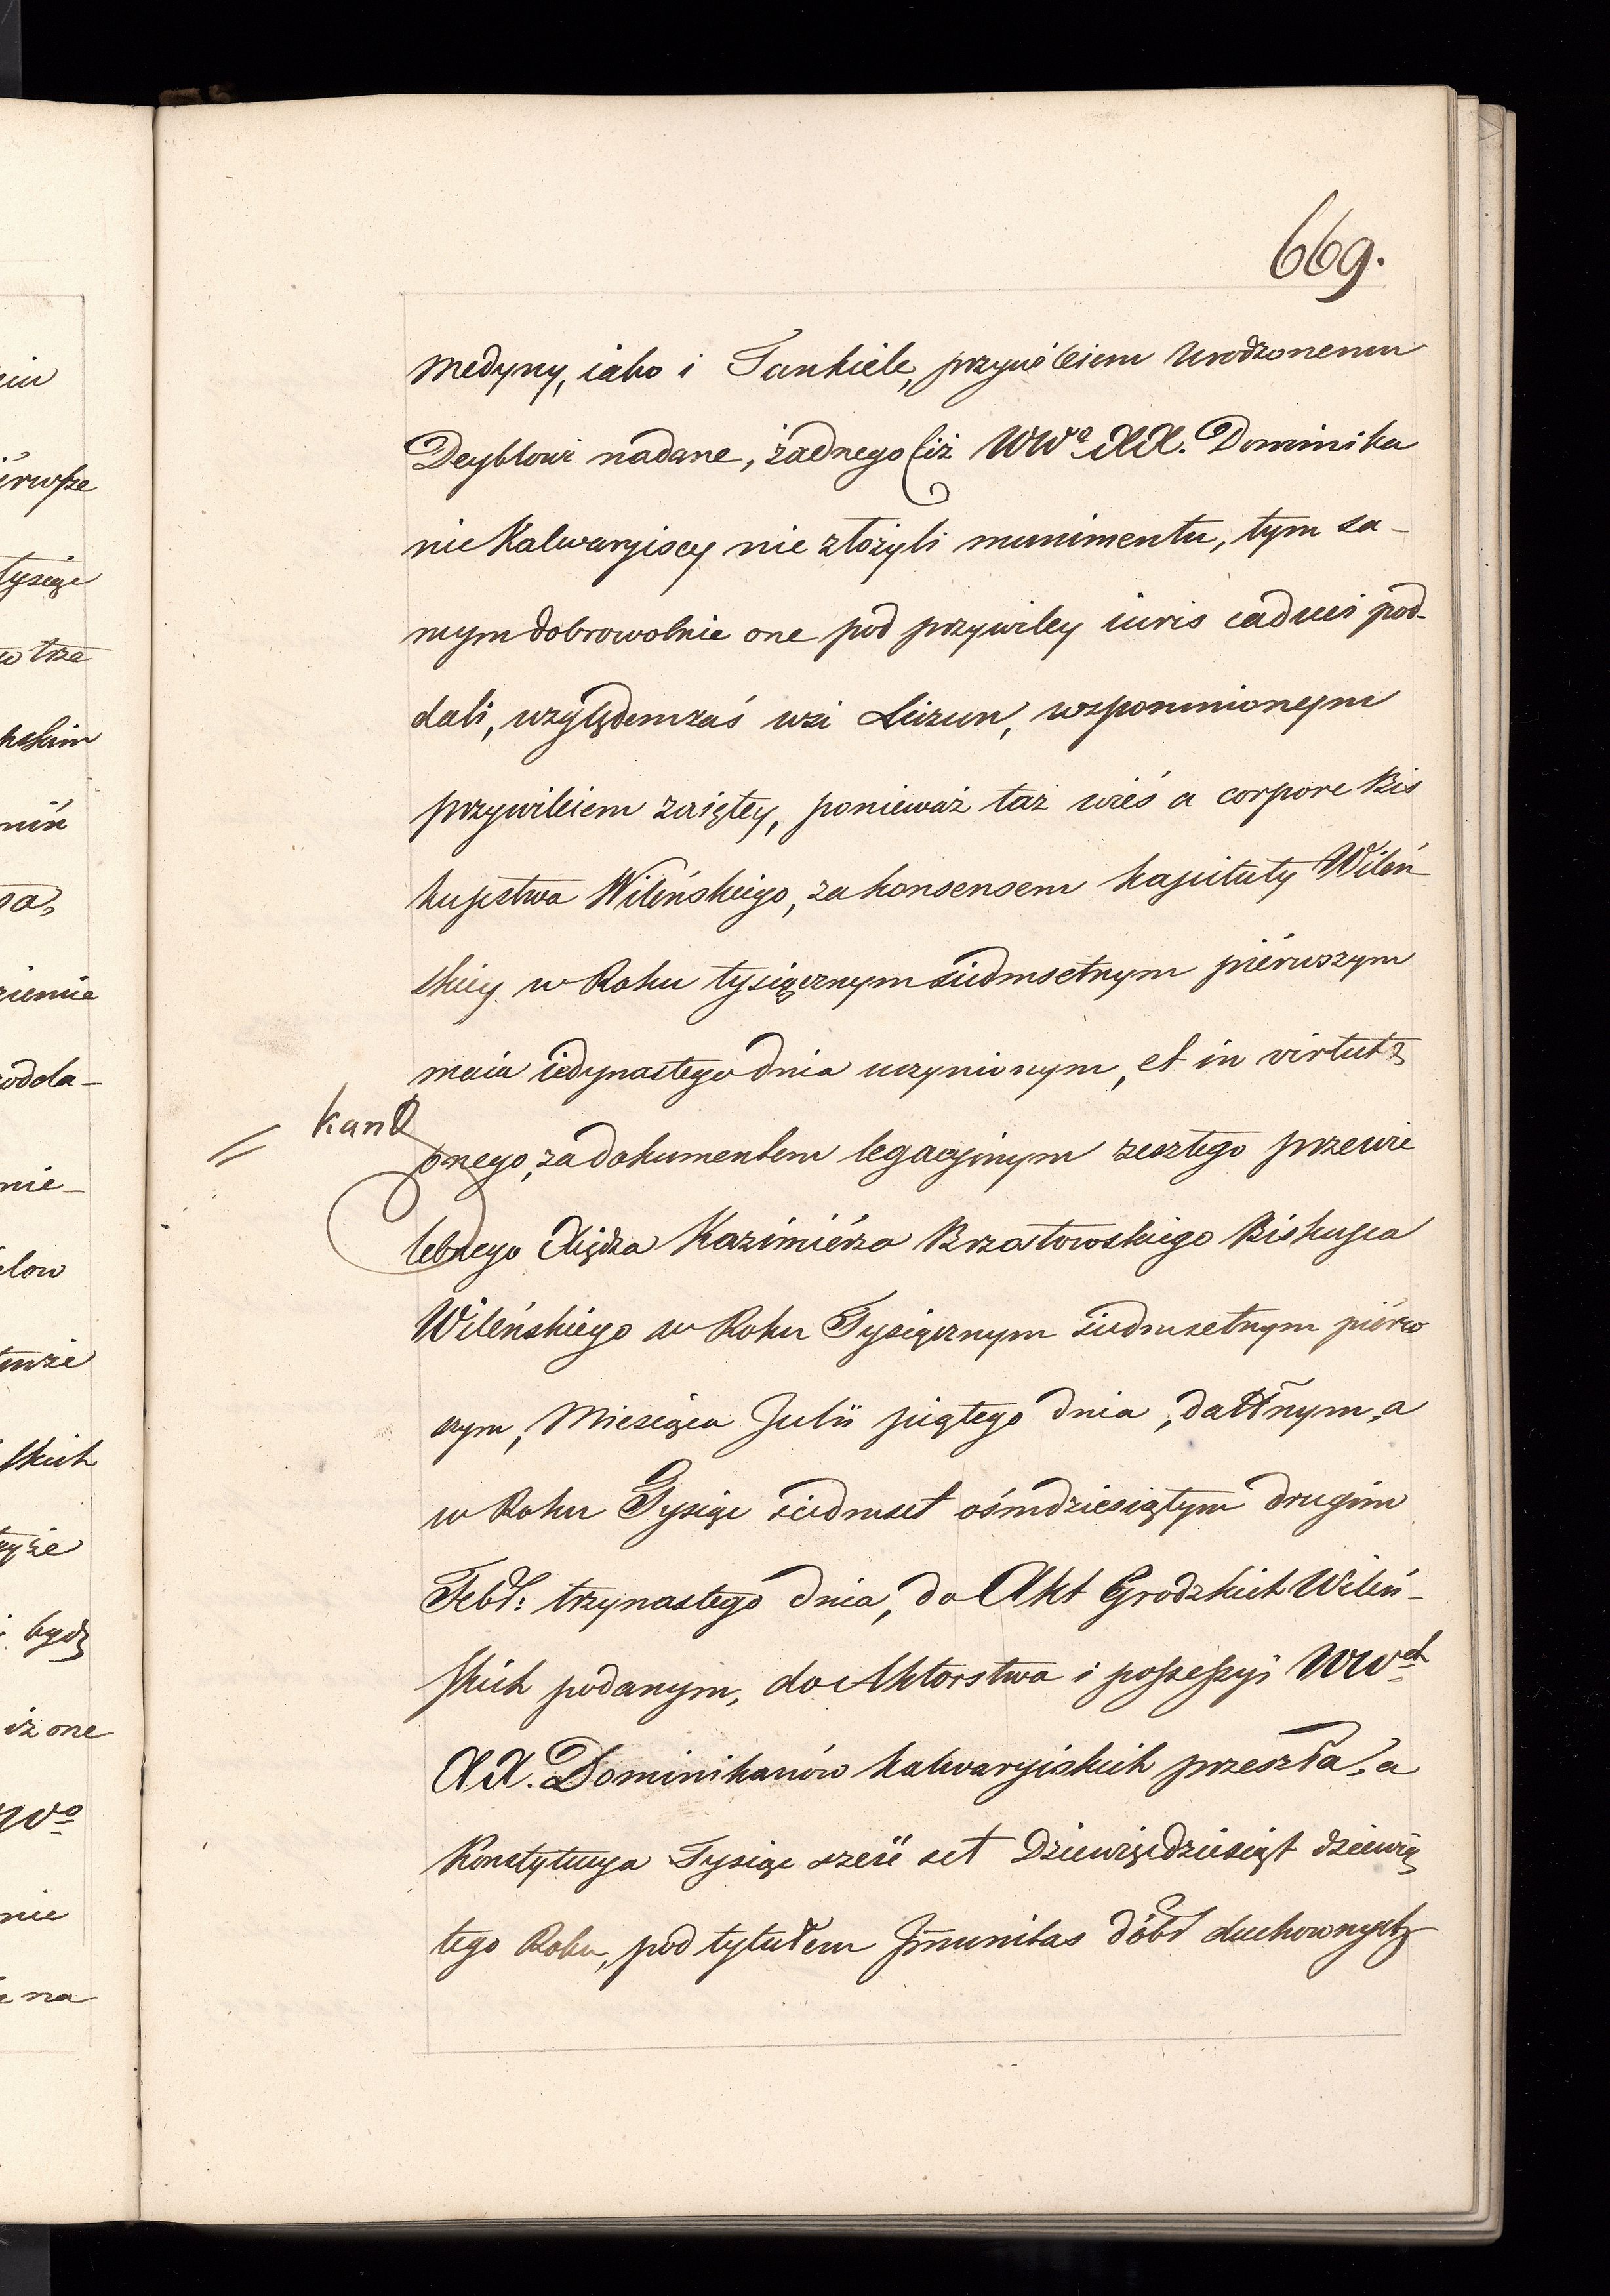 669.
Medyny, iako i Tankiele, przywileiem Urodzonemu
Deyblowi nadane, żadnego iż WWo XX. Dominika
nie Kalwaryiscy nie złożyli munimentu, tym sa-
mym dobrowolnie one pod przywiley iuris caduci pod-
dali, względem zaś wsi Luzun, wspomnionym
przywileiem zaiętey, ponieważ taż wieś a corpore Bis
kupstwa Wileńskiego, za konsensem kapituły Wileń
skiey w Roku tysiącznym siedmsetnym piérwszym
maia iedynastego dnia uczynionym, et in virtute
onego, za dokumentem legacyinym zeszłego przewie
= kand
lebnego Xiędza Kazimiérza Brzostowskiego Biskupa
Wileńskiego w Roku Tysiącznym siedmsetnym piérw
szym, Miesiąca Julii piątego dnia, dattnym, a
w Roku Tysiąc siedmset ośmdziesiątym drugim
Febr: trzynastego dnia, do Akt Grodzkich Wileń-
skich podanym, do Aktorstwa i possessyi WWch
XX. Dominikanów kalwaryiskich przeszła, a
Konstytucya Tysiąc sześć set Dziewięćdziesiąt dziewią
tego Roku, pod tytułem Jm̃unitas dóbr duchownych